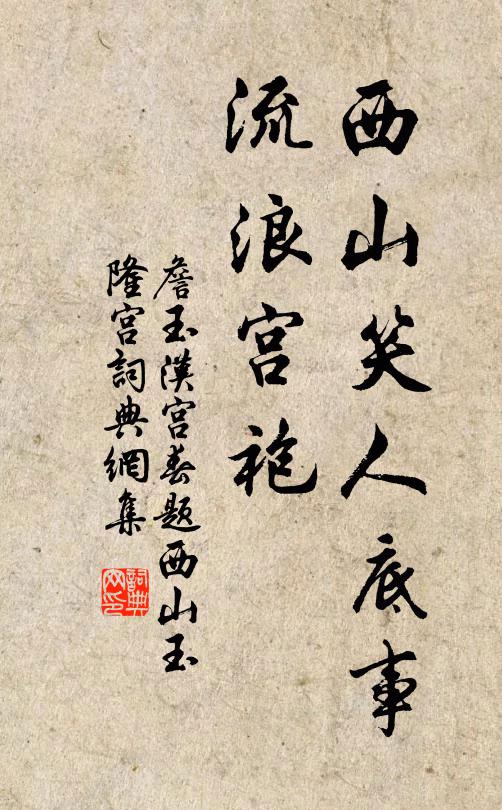 西山笑人底事
流浪宫袍
詹玉漢宫春題西山玉
隆宫詞典網集
詞典
网印